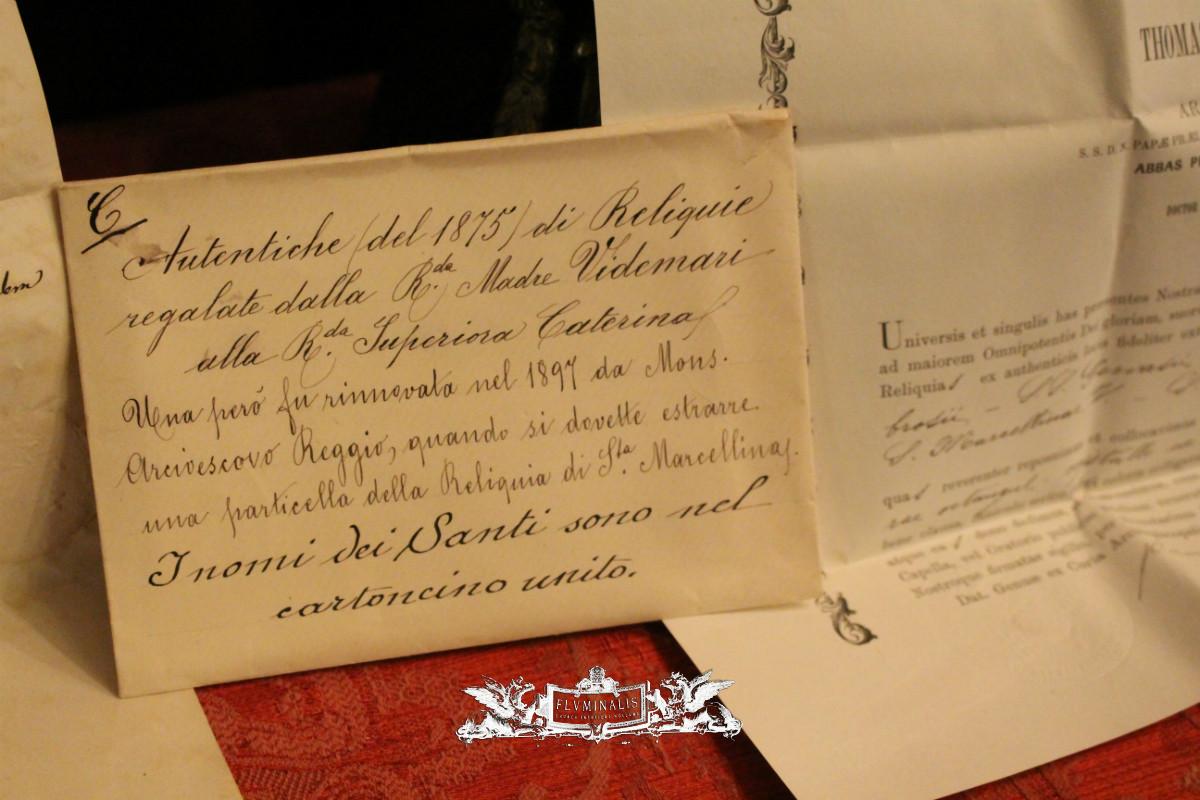 C
Autentiche (del 1875) di Reliquie
regalate dalla R.da Madre Videmari
alla R.da Superiora Caterina
Una però fu rinnovata nel 1897 da Mons.
Arcivescovo Reggio, quando si dovette estrarre
una particella della Reliquia di S.ta Marcellina.
I nomi dei Santi sono nel
cartoncino unito.
THOMA
AR
S. S. D. N. PAPÆ PRÆ
ABBAS P
Universis et singulis has præsentes Nostra
ad maiorem Omnipotentis Dei gloriam, suor
Reliquias ex authenticis locis fideliter ex
brosii
S. Marcellinæ
quas reverenter
collocavim
Capella, vel Oratorio
Nostroque firmatas sigillo
Dat. Genuae ex Curia
FLVMINALIS